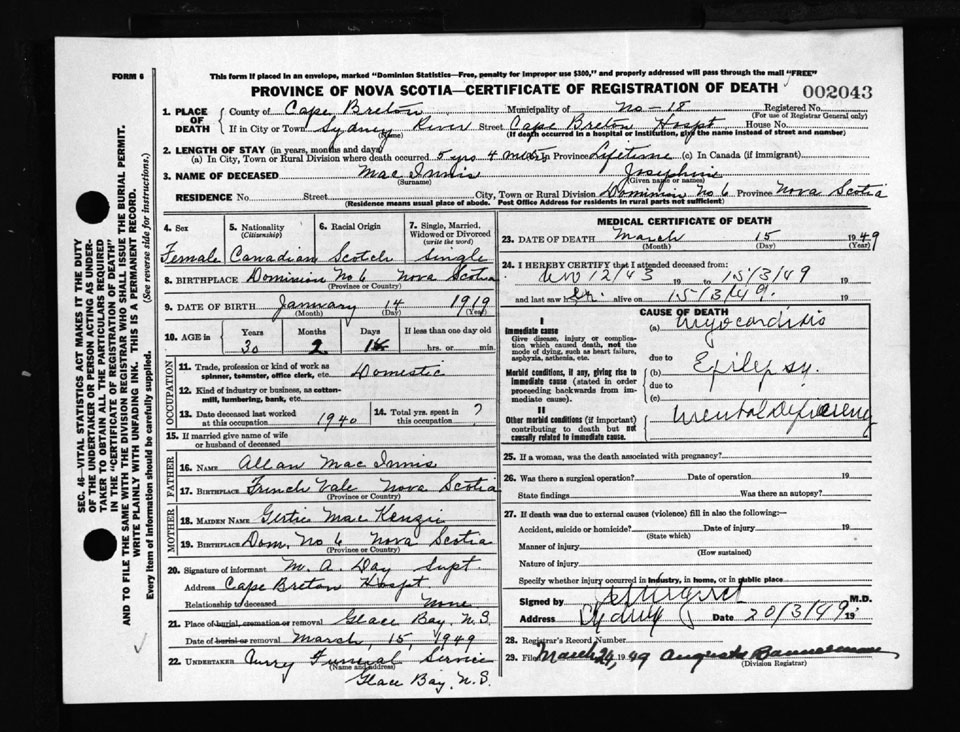 FORM 6
This form if placed in an envelope, marked "Dominion Statistics—Free, penalty for improper use $300," and properly addressed will pass through the mail "FREE"
PROVINCE OF NOVA SCOTIA—CERTIFICATE OF REGISTRATION OF DEATH 002043
1. PLACE OF DEATH
County of Cape Breton Municipality of No-18 Registered No.
(For use of Registrar General only)
If in City or Town Sydney River Street Cape Breton Hospt House No.
(Name) (If death occurred in a hospital or institution, give the name instead of street and number)
2. LENGTH OF STAY (in years, months and days)
(a) In City, Town or Rural Division where death occurred 5 yrs 4 mos In Province Lifetime (c) In Canada (if immigrant)
3. NAME OF DECEASED Mac Innis Josephine
(Surname) (Given name or names)
RESIDENCE No. Street City, Town or Rural Division Dominion No 6 Province Nova Scotia
(Residence means usual place of abode. Post Office Address for residents in rural parts not sufficient)
4. Sex 5. Nationality (Citizenship) 6. Racial Origin 7. Single, Married, Widowed or Divorced (write the word)
Female Canadian Scotch Single
8. BIRTHPLACE Dominion No 6 Nova Scotia
(Province or Country)
9. DATE OF BIRTH January 14 1919
(Month) (Day) (Year)
10. AGE in Years Months Days If less than one day old
30 2 hrs. or min.
OCCUPATION
11. Trade, profession or kind of work as spinner, teamster, office clerk, etc. Domestic
12. Kind of industry or business, as cotton-mill, lumbering, bank, etc.
13. Date deceased last worked at this occupation 1940 14. Total yrs. spent in this occupation ?
15. If married give name of wife or husband of deceased
FATHER
16. NAME Allan Mac Innis
17. BIRTHPLACE French Vale Nova Scotia
(Province or Country)
MOTHER
18. MAIDEN NAME Gertie Mac Kenzie
19. BIRTHPLACE Dom. No 6 Nova Scotia
(Province or Country)
20. Signature of informant M. A. Day Supt.
Address Cape Breton Hospt.
Relationship to deceased None
21. Place of burial, cremation or removal Glace Bay, N.S.
Date of burial or removal March, 15, 1949
22. UNDERTAKER Curry Funeral Service
(Name and address)
Glace Bay, N.S.
MEDICAL CERTIFICATE OF DEATH
23. DATE OF DEATH March 15 1949
(Month) (Day) (Year)
24. I HEREBY CERTIFY that I attended deceased from:
12/43 19 to 15/3/49 19
and last saw alive on 15/3/49. 19
CAUSE OF DEATH
I
Immediate cause
Give disease, injury or complication which caused death, not the mode of dying, such as heart failure, asphyxia, asthenia, etc.
(a) Myocarditis
due to
Morbid conditions, if any, giving rise to immediate cause (stated in order proceeding backwards from immediate cause).
(b) Epilepsy.
due to
(c)
II
Other morbid conditions (if important) contributing to death but not causally related to immediate cause.
Mental Deficiency
25. If a woman, was the death associated with pregnancy?
26. Was there a surgical operation? Date of operation 19
State findings Was there an autopsy?
27. If death was due to external causes (violence) fill in also the following:—
Accident, suicide or homicide? Date of injury 19
(State which)
Manner of injury
(How sustained)
Nature of injury
Specify whether injury occurred in industry, in home, or in public place
Signed by M.D.
Address Sydney Date 20/3/49 19
28. Registrar's Record Number
29. Filed March 24, 1949 Augusta Bannerman
(Division Registrar)
SEC. 46—VITAL STATISTICS ACT MAKES IT THE DUTY
OF THE UNDERTAKER OR PERSON ACTING AS UNDER-
TAKER TO OBTAIN ALL THE PARTICULARS REQUIRED
IN THE "CERTIFICATE OF REGISTRATION OF DEATH"
AND TO FILE THE SAME WITH THE DIVISION REGISTRAR WHO SHALL ISSUE THE BURIAL PERMIT.
WRITE PLAINLY WITH UNFADING INK. THIS IS A PERMANENT RECORD.
Every item of information should be carefully supplied. (See reverse side for instructions.)